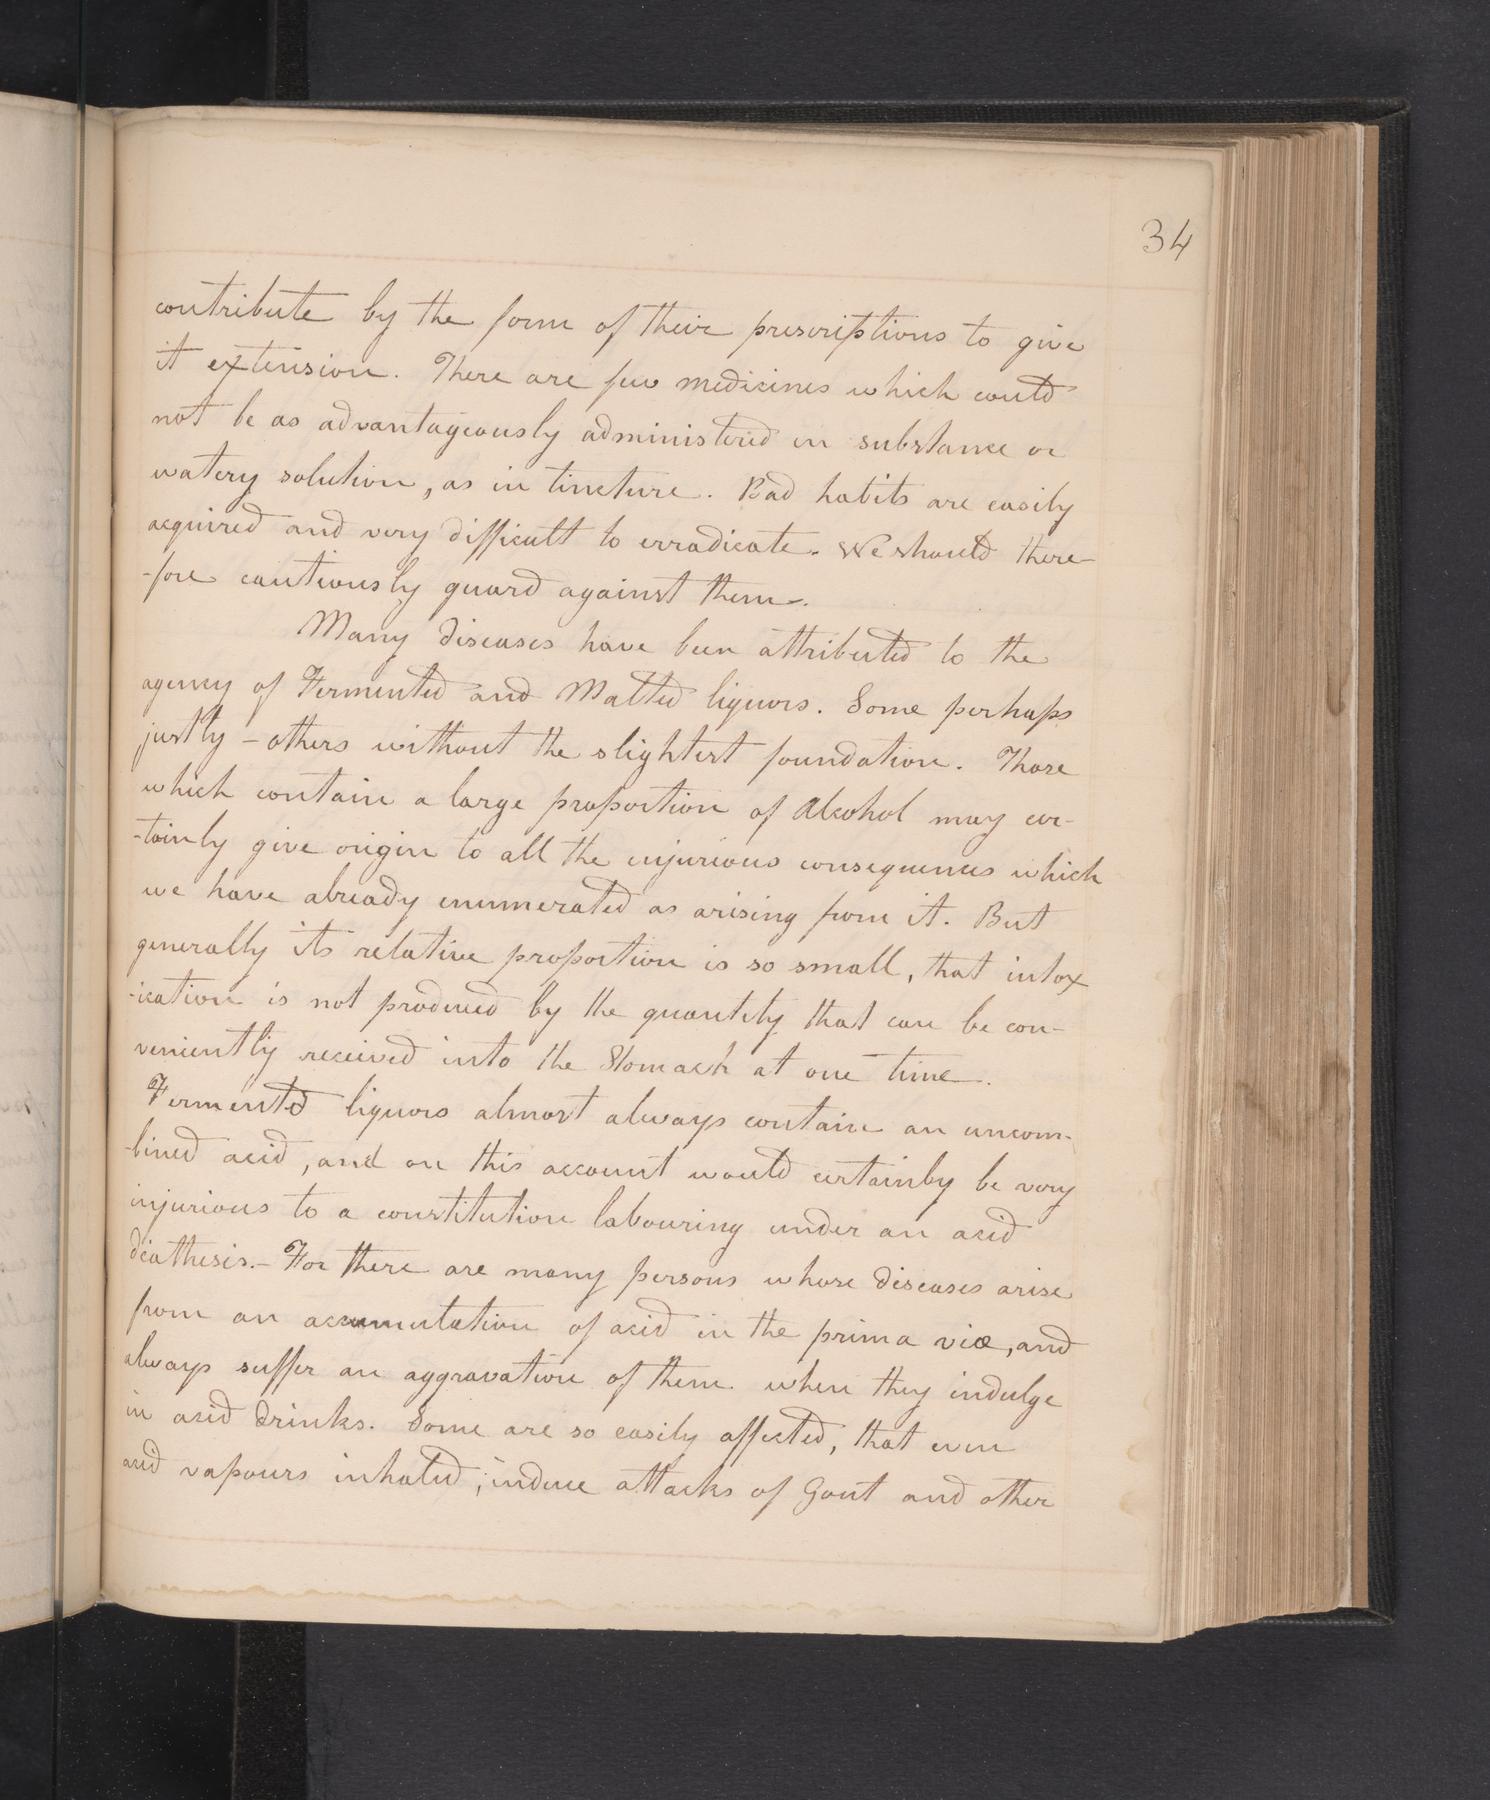 34
contribute by the form of their prescriptions to give
it extension. There are few medicines which could
not be as advantageously administered in substance or
watery solution, as in tincture. Bad habits are easily
acquired and very difficult to erradicate. We should there-
-fore cautiously guard against them.
Many diseases have been attributed to the
agency of Fermented and Malted liquors. Some perhaps
justly - others without the slightest foundation. Those
which contain a large proportion of Alcohol may cer-
-tainly give origin to all the injurious consequences which
we have already enumerated as arising from it. But
generally its relative proportion is so small, that intox
-ication is not produced by the quantity that can be con-
veniently received into the Stomach at one time.
Fermented liquors almost always contain an uncom-
-bined acid, and on this account would certainly be very
injurious to a constitution labouring under an acid
diathesis. - For there are many persons whose diseases arise
from an accumulation of acid in the prima viæ, and
always suffer an aggravation of them when they indulge
in acid drinks. Some are so easily affected, that even
acid vapours inhaled, induce attacks of Gout and other